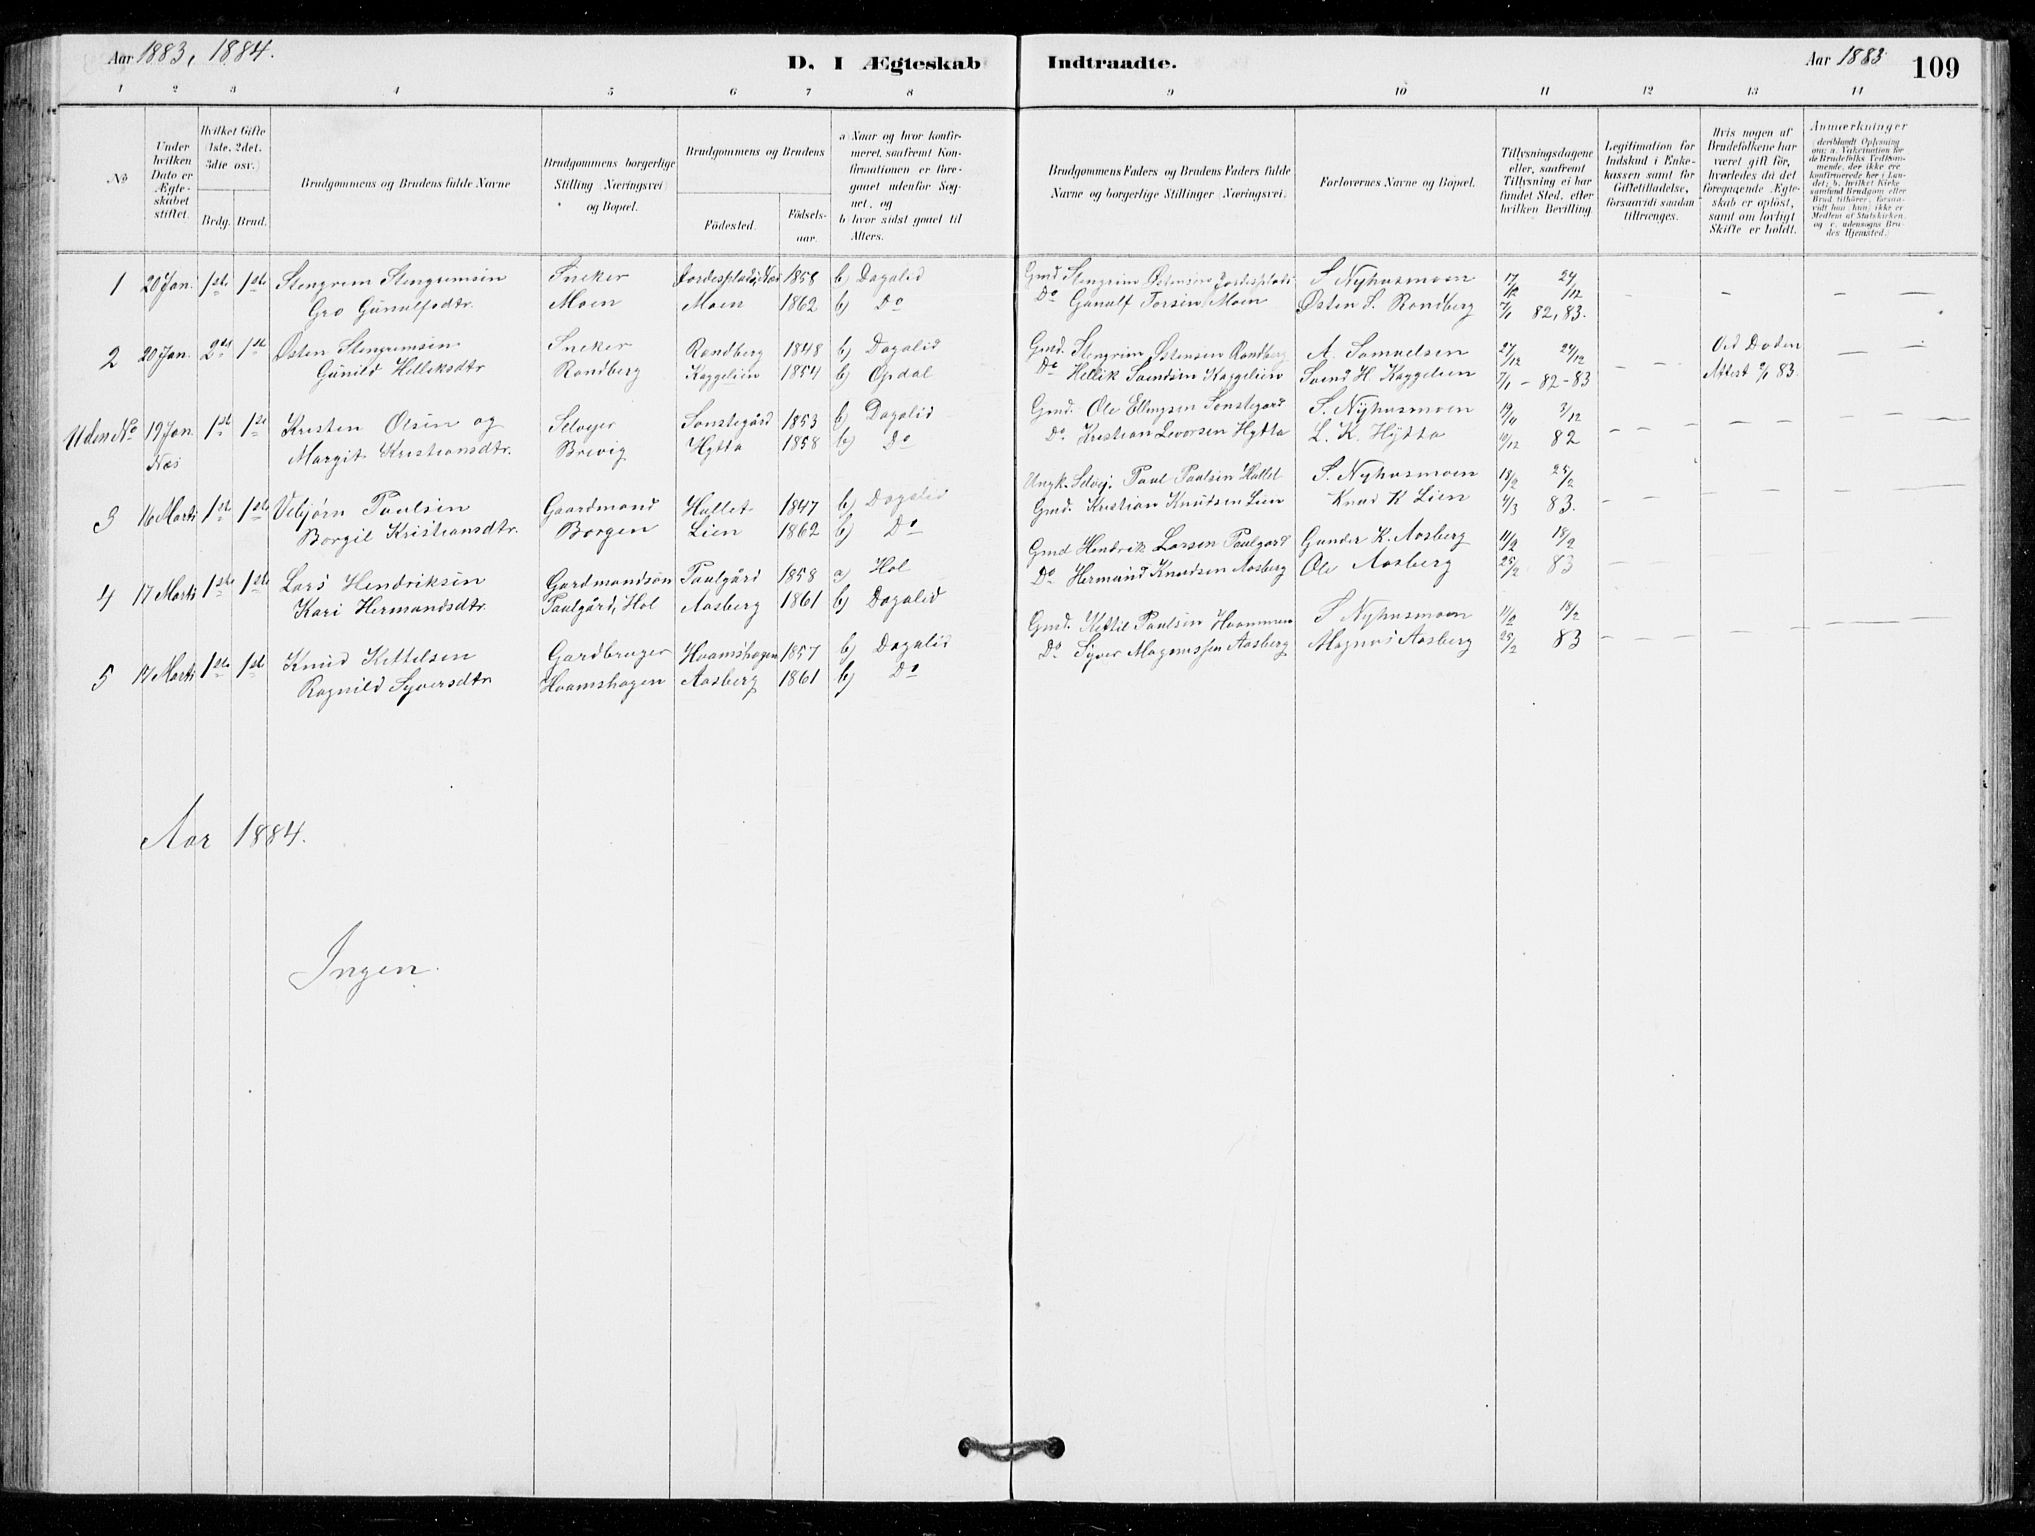 Aar 1883, 1884.
D. I Ægteskab Indtraadte.
Aar 1883
109
1 2 3 4 5 6 7 8 9 10 11 12 13 14
No
Under hvilken Dato er Ægteskabet stiftet.
Hvilket Gifte (1ste, 2det, 3die osv.)
Brdg. Brud.
Brudgommens og Brudens fulde Navne
Brudgommens borgerlige Stilling (Næringsvei) og Bopæl.
Brudgommens og Brudens
Födested.
Födsels-aar.
a) Naar og hvor konfirmeret, saafremt Konfirmationen er foregaaet udenfor Sognet, og
b) hvor sidst gaaet til Alters.
Brudgommens Faders og Brudens Faders fulde Navne og borgerlige Stillinger (Næringsvei).
Forlovernes Navne og Bopæl.
Tillysningsdagene eller, saafremt Tillysning ei har fundet Sted, efter hvilken Bevilling.
Legitimation for Indskud i Enkekassen samt for Giftetilladelse, forsaavidt saadan tiltrænges.
Hvis nogen af Brudefolkene har været gift før, hvorledes da det foregaaende Ægteskab er opløst, samt om lovligt Skifte er holdt.
Anmærkninger (deriblandt Oplysning om: a. Vakcination for de Brudefolks Vedkommende, der ikke ere konfirmerede her i Landet; b. hvilket Kirkesamfund Brudgom eller Brud tilhører, forsaavidt han (hun) ikke er Medlem af Statskirken, og c. udensogns Brudes Hjemsted.)
1 20 Jan. 1ste 1ste Stengrim Stengrimsen Sneker 1858 b) Dagalid Gmd. Stengrim Østensen Jordesplads S. Nyhusmoen 17/12 24/12 – – – –
Gro Gunulfsdtr. Moen Moen 1862 b) Do Do Gunulf Torsen Moen Østen S. Randberg 7/1 82, 83.
2 20 Jan. 2det 1ste Østen Stengrimsen Sneker Randberg 1848 b) Dagalid Gmd. Stengrim Østensen Randberg A. Samuelsen 27/12 24/12 – – Ved Døden – –
Gunild Helleksdtr Randberg Kaggelien 1854 b) Opdal Do Hellik Svendsen Kaggelien Svend H. Kaggelien 7/1 – 82 – 83 Attest 83.
Uden No 19 Jan. 1ste 1ste Kristen Olsen og Selveyer Sonstegård 1853 b) Dagalid Gmd. Ole Ellingsen Sonstegård S. Nyhusmoen 19/11 3/12 – – – – – –
Næs Margit Kristiansdtr. Brevig Hytta 1858 b) Do Do Kristian Levorsen Hytta L. K. Hytta 10/12 82
3 16 Marts 1ste 1ste Vebjørn Paulsen Gaardmand Hallet 1847 b) Dagalid Ungk. Selvej. Paul Paulsen Hallet S. Nyhusmoen 18/2 25/2
Borgil Kristiansdtr. Borgen Lien 1862 b) Do Gmd. Kristian Knudsen Lien Knud K Lien 4/3 83. – – – – – –
4 17 Marts 1ste 1ste Lars Hendriksen Gardmandsøn Paulgård 1858 a) Hol Gmd Hendrik Larsen Paulgard Gunder K. Aasberg 11/2 18/2
Kari Hermandsdtr. Paulgård, Hol Aasberg 1861 b) Dagalid Do Hermand Knudsen Aasberg Ole Aasberg 25/2 83 – – – – – –
5 17 Marts 1ste 1ste Knud Kettelsen Gardbruger Hvamshagen 1857 b) Dagalid Gmd. Kettil Paulsen Hvammen S Nyhusmoen 11/2 18/2
Ragnild Syversdtr. Hvamshagen Aasberg 1861 b) Do Do Syver Magnussen Aasberg Magnus Aasberg 25/2 83 – – – – – –
Aar 1884.
Ingen.